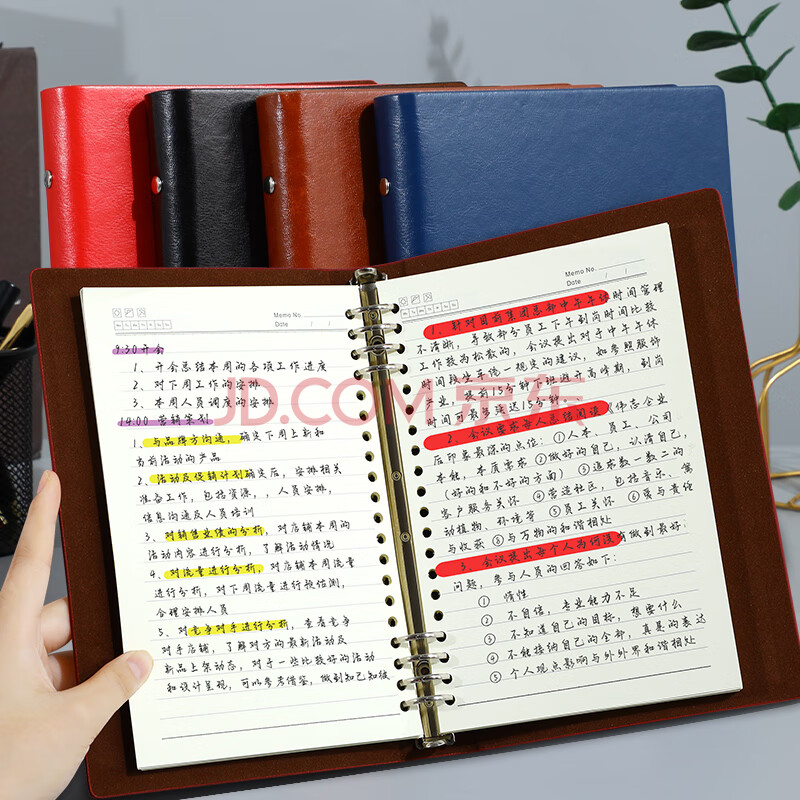 Memo No.
Date / /
9:30开会
1、开会总结本周的各项工作进度
2、对下周工作的安排
3、本周人员调度的安排
14:00 营销策划
1、与品牌方沟通，确定下周上新和
当前活动的产品
2、活动及促销计划确定后，安排相关
准备工作，包括资源，、人员安排，
信息沟通及人员培训
3、对销售业绩的分析，对店铺本周的
活动内容进行分析，了解活动情况
4、对流量进行分析，对店铺本周流量
进行分析，对下周流量进行预估测，
合理安排人员
5、对竞争对手进行分析，查看竞争
对手店铺，了解对方的最新活动及
新品上架动态，对于一些比较好的活动
和设计呈现，可以参考借鉴，做到知己知彼
Memo No.
Date / /
1、针对目前集团总部中午午休时间管理
不清晰，导致部分员工下午到岗时间比较
工作较为松散的，会议提出对于中午午休
时间段出年统一规定的建议，如参照服饰
企业，提前15分钟下班避开高峰期，到岗
时间可最多延迟15分钟
2、会议要求每人总结阅读《伟志企业
后印象最深的点位：①人本、员工、公司
本能，本质需求 ②做好的自己，认清自己，
（好的和不好的方面）③追求数一数二的
客户服务关怀 ④营造社区，包括音乐、寓
动植物、环境等 ⑤员工关怀 ⑥员与责任
与收获 ⑧与万物的和谐相处
3、会议提出每个人为何没有做到最好：
问题，参与人员的回答如下：
① 惰性
② 不自信，专业能力不足
③ 不知道自己的目标，想要什么
④ 不能接纳自己的全部，真是的表达
⑤ 个人观点影响与外外界和谐相处
JD.COM 京东